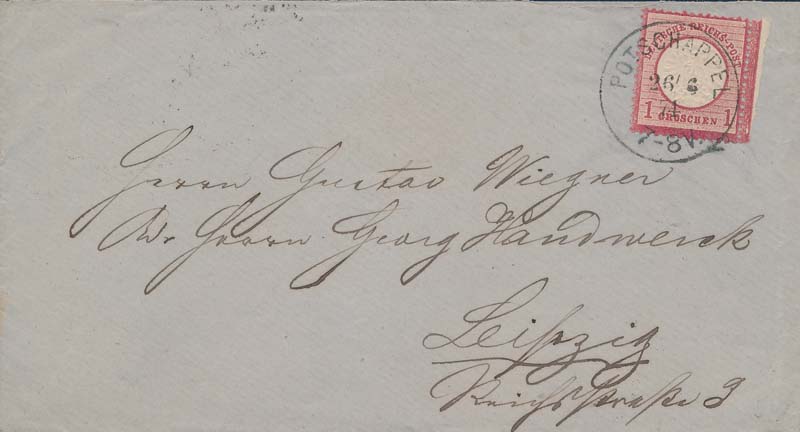 POTSCHAPPEL
26/6
74
7-8V.
REICHS-POST
1 GROSCHEN 1
Herrn Gustav Wiegner
Herrn Georg Handwerck
Leipzig
Reichsstraße 3